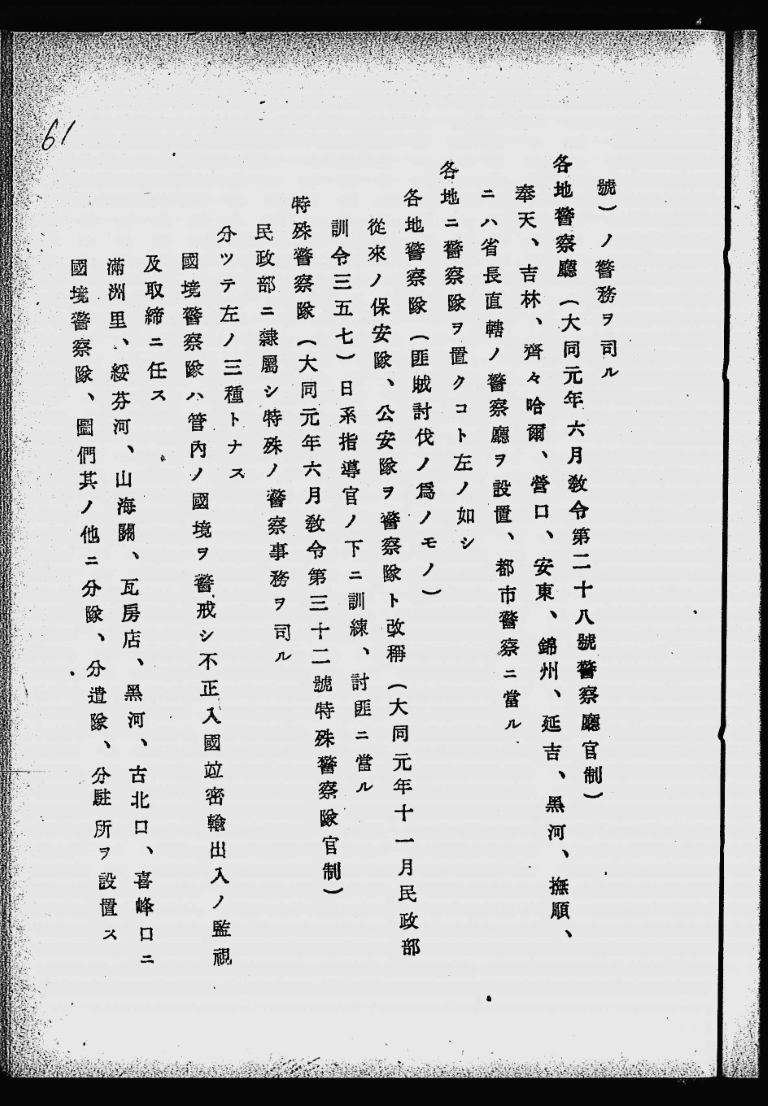 61
號）ノ警務ヲ司ル
各地警察廳（大同元年六月敎令第二十八號警察廳官制）
奉天、吉林、齊々哈爾、營口、安東、錦州、延吉、黑河、撫順、
ニハ省長直轄ノ警察廳ヲ設置、都市警察ニ當ル
各地ニ警察隊ヲ置クコト左ノ如シ
各地警察隊（匪賊討伐ノ爲ノモノ）
從來ノ保安隊、公安隊ヲ警察隊ト改稱（大同元年十一月民政部
訓令三五七）日系指導官ノ下ニ訓練、討匪ニ當ル
特殊警察隊（大同元年六月敎令第三十二號特殊警察隊官制）
民政部ニ隷屬シ特殊ノ警察事務ヲ司ル
分ツテ左ノ三種トナス
國境警察隊ハ管內ノ國境ヲ警戒シ不正入國竝密輸出入ノ監視
及取締ニ任ス
滿洲里、綏芬河、山海關、瓦房店、黑河、古北口、喜峰口ニ
國境警察隊、圖們其ノ他ニ分隊、分遣隊、分駐所ヲ設置ス